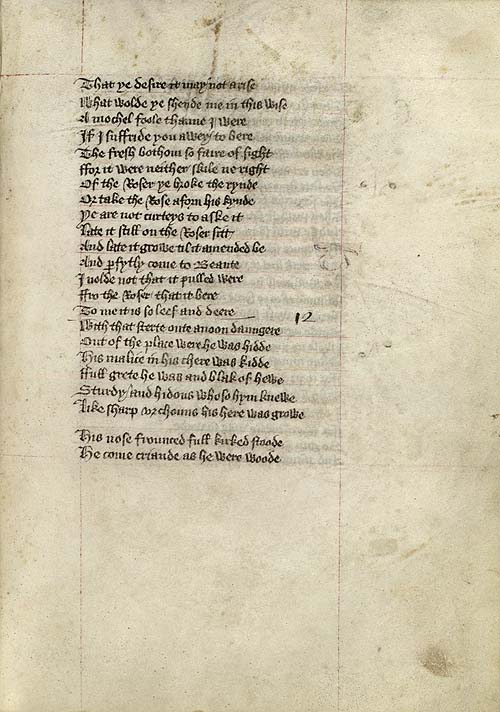 That ye desire it may not arise
What wolde ye shende me in this wise
A mochel foole thanne I were
If I suffride you awey to bere
The fresh bothom so faire of sight
ffor it were neither skile ne right
Of the Roser ye broke the rynde
Or take the Rose aforn his kynde
Ye are not curteys to aske it
Late it still on the Roser sitt
And late it growe til it amended be
And pfytly come to Beaute
I nolde not that it pulled were
ffro the Roser that it bere
To me it is so leef and deere
12
With that sterte oute anoon daungere
Out of the place were he was hidde
His malice in his chere was kidde
ffull grete he was and blak of hewe
Sturdy / and hidous who so hym knewe
Like sharp vrchouns his here was growe
His nose frounced full kirked stoode
He come criande as he were woode